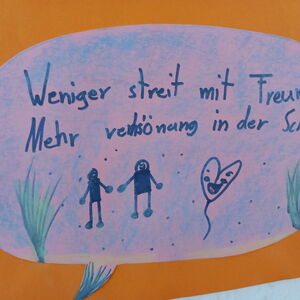 Weniger streit mit Freun
Mehr versönang in der Sc